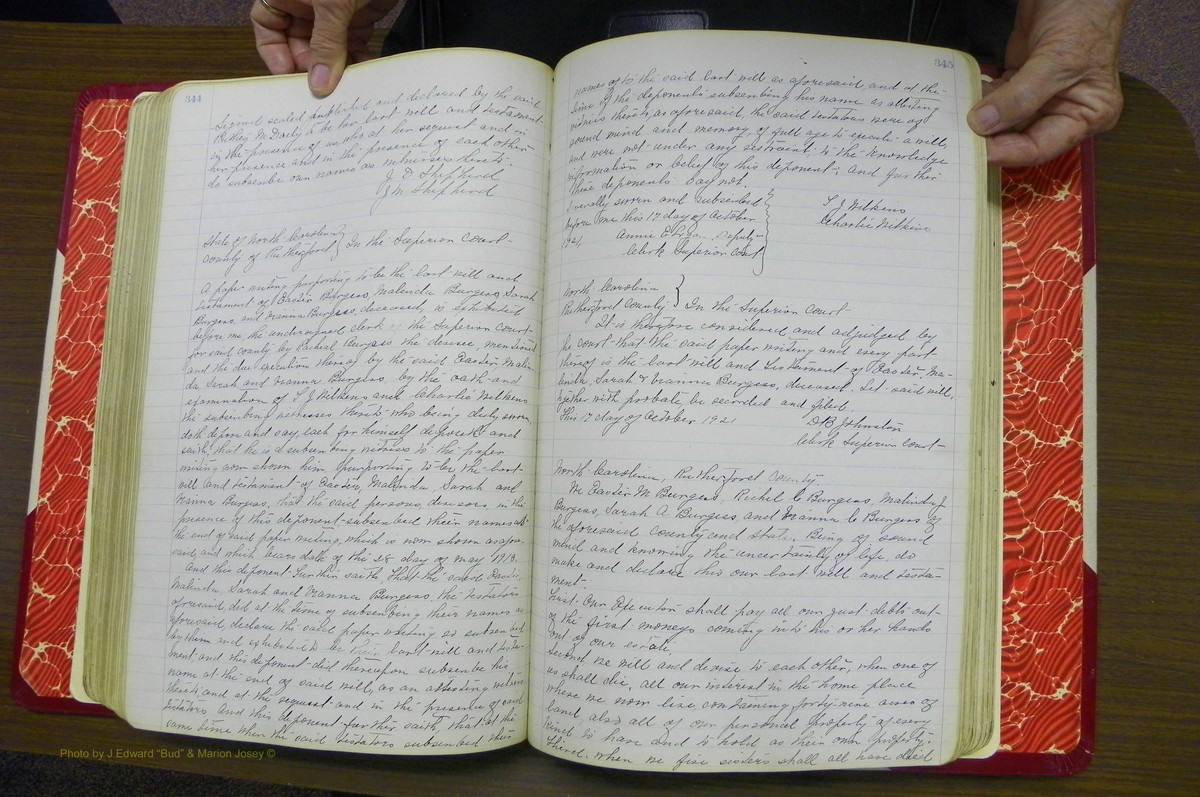 344
Signed sealed published and declared by the said
Kathey M Daily to be her last will and testament
in the presence of us who at her request and in
her presence and in the presence of each other
do subscribe our names as witnesses thereto
J. D. Shepherd
J M Shepherd
State of North Carolina
County of Rutherford } In the Superior Court-
A paper writing purporting to be the last will and
testament of Easter Burgess, Malinda Burgess, Sarah
Burgess, and Vianna Burgess, deceased, is exhibited
before me the undersigned clerk of the Superior Court-
for said county by Rachel Burgess the devisee, mentioned
and the due execution thereof by the said Easter, Malin
da Sarah and Vianna Burgess, by the oath and
examination of L J Wilkins and Charlie Wilkins
the subscribing witnesses thereto who being duly sworn
doth depose and say, each for himself deposeth and
saith, that he is a subscribing witness to the paper
writing now shown him, purporting to be the last
will and testament of Easter, Malinda, Sarah and
Vianna Burgess, that the said persons, devisors in the
presence of this deponent subscribed their names at
the end of said paper writing, which is now shown as afore
said, and which bears date of the 28 day of May 1918.
And this deponent further saith, That the said Easter,
Malinda, Sarah and Vianna Burgess, the testators
aforesaid, did at the time of subscribing their names as
aforesaid, declare the said paper writing so subscribed
by them and exhibited to be their last will and testa-
ment, and this deponent did thereupon subscribe his
name at the end of said will, as an attesting witness
thereto, and at the request and in the presence of said
testators and this deponent further saith, that at the
same time when the said testators subscribed their
345
names to the said last will as aforesaid, and at the
time of the deponents subscribing his name as attesting
witness thereto, as aforesaid, the said testators were of
sound mind and memory, of full age to execute a will,
and were not under any restraint, to the knowledge
information or belief of this deponent; and further
these deponents say not.
Severally sworn and subscribed
before me this 17 day of October
1921.
Deputy-
Clerk Superior Court
L J Wilkins
Charlie Wilkins
North Carolina
Rutherford County } In the Superior Court
It is therefore considered and adjudged by
the court that the said paper writing and every part
thereof is the last will and testament of Easter, Ma-
linda, Sarah & Vianna Burgess, deceased. Let said will,
together with probate, be recorded and filed.
This 17 day of October 1921
D B Johnston
Clerk Superior Court-
North Carolina, Rutherford County.
We Easter M Burgess Richel C Burgess, Malinda J
Burgess, Sarah A. Burgess, and Vianna C Burgess of
the aforesaid county and state. Being of sound
mind and knowing the uncertainty of life do
make and declare this our last will and testa-
ment-
First. Our Executor shall pay all our just debts out-
of the first moneys coming into his or her hands
out of our estate,
Second we will and devise to each other, when one of
us shall die, all our interest in the home place
where we now live containing forty-nine acres of
land also all of our personal property of every
kind to have and to hold as their own property.
Third. When we five sisters shall all have died
Photo by J Edward "Bud" & Marion Josey ©